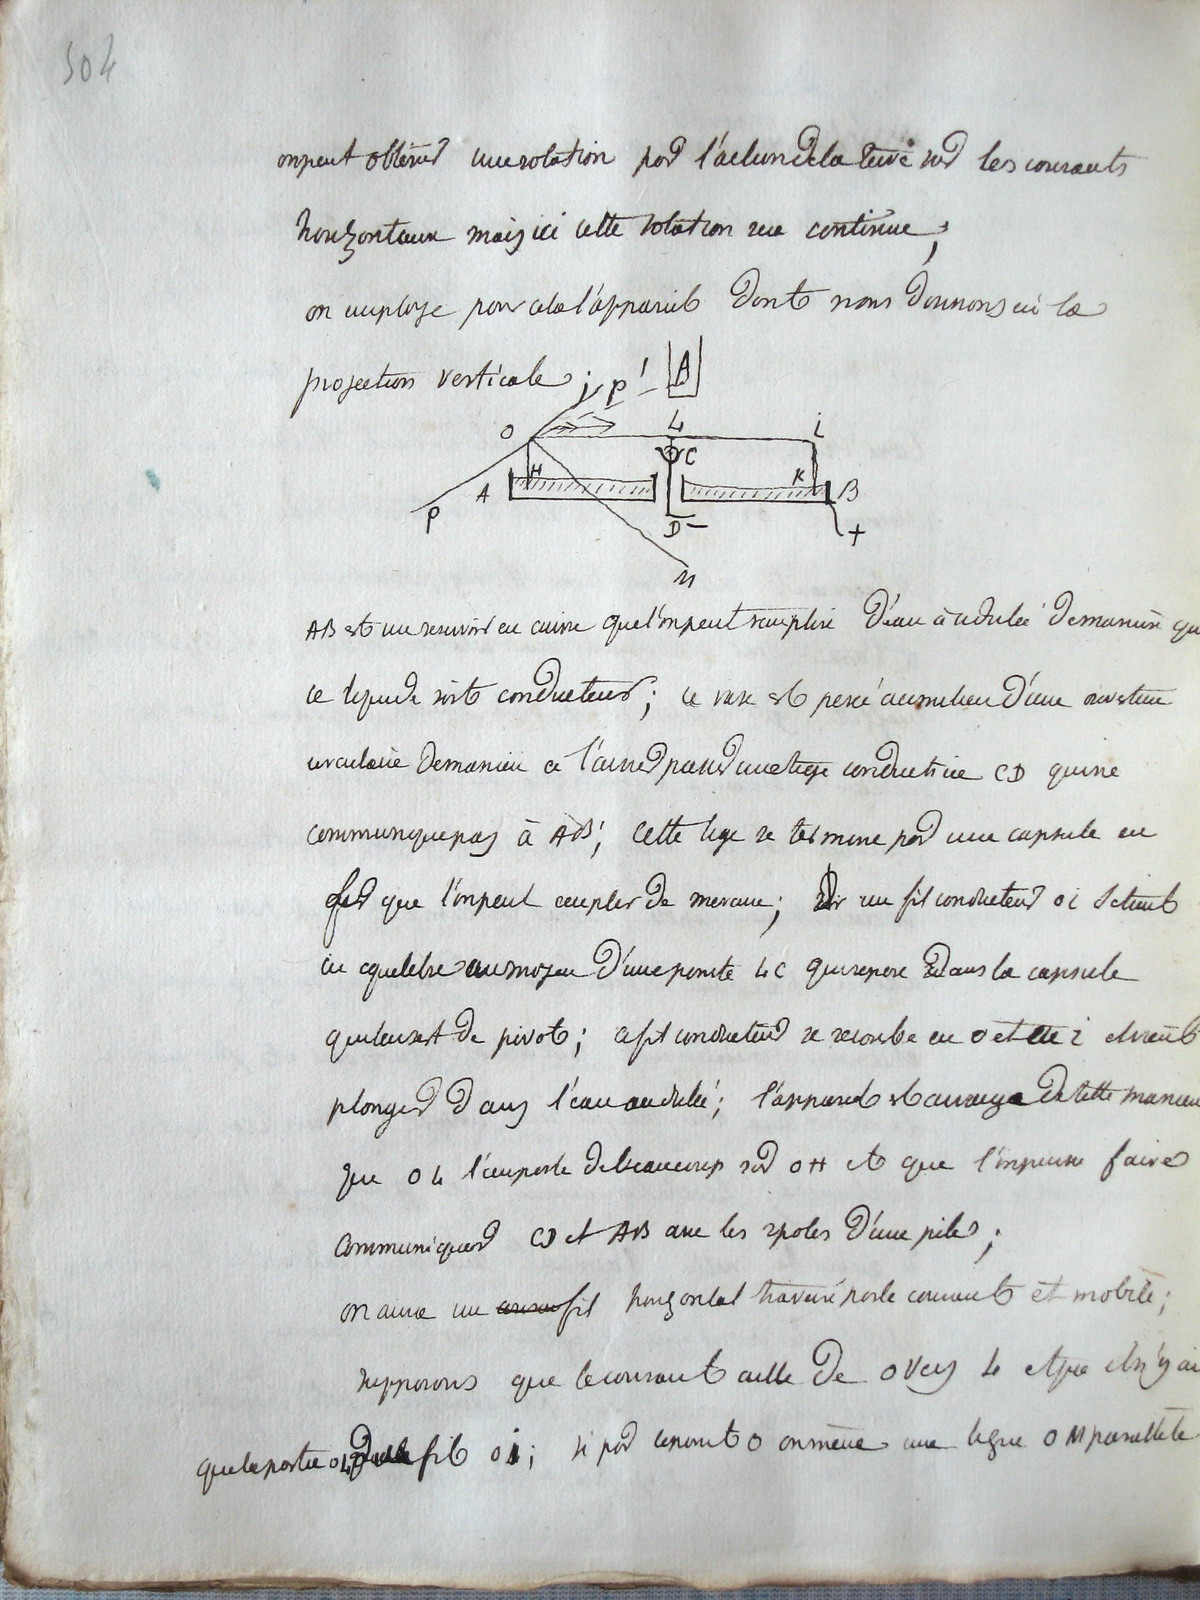 504
on peut obtenir une rotation par l'action de la terre sur les courants
horizontaux mais ici cette rotation sera continue;
on employe pour cela l'appareil dont nous donnons ici la
projection verticale
P' A
O L i
C
A H K B
P D − +
M
AB est un reservoir en cuivre que l'on peut remplir d'eau acidulée de maniere que
ce liquide soit conducteur; ce vase est percé au milieu d'une ouverture
circulaire de maniere a laisser passer une tige conductrice CD qui ne
communique pas à AB; cette tige se termine par une capsule en
fer que l'on peut remplir de mercure; un fil conducteur oi se tient
en equilibre au moyen d'une pointe LC qui repose dans la capsule
qui leur sert de pivot; ce fil conducteur se recourbe en o et en i et vient
plonger dans l'eau acidulée; l'appareil est arrangé de cette maniere
que OL l'emporte de beaucoup sur OH et que l'on peut faire
communiquer CD et AB avec les 2 poles d'une pile;
on aura un fil horizontal traversé par le courant et mobile;
supposons que le courant aille de O vers L et que il n'y ai
que la partie OL du fil oi; si par le point O on mène une ligne OM parallele